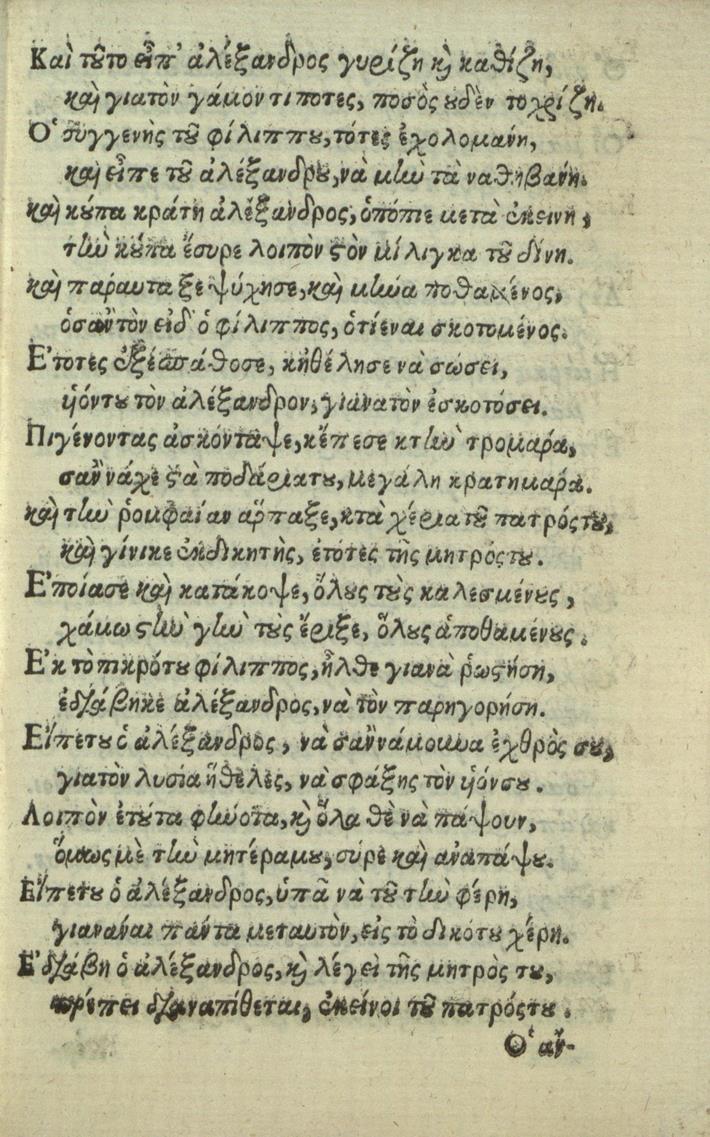 Καὶ τȣ͂το εἶπ' ἀλέξανδρος γυρίζη κỳ καθίζη,
καὶ γιατὸν γάμον τιποτες, ποσὸς ȣδὲν τοχρίζη.
Ὁ συγγενὴς τȣ͂ φίλιππȣ, τότες ἐχολομανη,
καὶ εἶπε τȣ͂ ἀλέξανδρȣ, νὰ μὴν τὰ ναθιβανη.
καὶ κȣ́πα κράτη ἀλέξανδρος, ὁπόπιε μετὰ ἐκεινη,
τὴν κȣ́πα ἔσυρε λοιπὸν ϛὸν μίλιγκα τȣ͂ δίνη.
καὶ πάραυτα ξεψύχησε, καὶ μὴνα ποθαμένος,
ὁσαν τὸν εἰδ' ὁ φίλιππος, ὁτίεναι σκοτομένος.
Ἐτοτες ἐξεσπάθοσε, κηθέλησε νὰ σώσει,
ὑόντȣ τὸν ἀλέξανδρον, γιανατὸν ἐσκοτόσει.
Πιγένοντας ἀσκόνταψε, κἔπεσε κτὴν τρομάρα,
σαν νάχε ϛὰ ποδάριατȣ, μεγάλη κρατημάρα.
καὶ τὴν ῥομφαίαν ἅρπαξε, κτὰ χέρια τȣ͂ πατρόςτȣ,
καὶ γίνικε ἐκδικητὴς, ἐτότες τῆς μητρόςτȣ.
Ἐποίασε καὶ κατάκοψε, ὅλȣς τȣ̀ς καλεσμένȣς,
χάμω ϛὴν γὴν τȣ̀ς ἔριξε, ὅλȣς ἀποθαμένȣς.
Ἐκ τὸ πικρότȣ φίλιππος, ἦλθε γιανὰ ῥωϛήση,
ἐδιάβηκε ἀλέξανδρος, νὰ τὸν παρηγορήση.
Εἴπετȣ ὁ ἀλέξανδρος, νὰ σαν νάμουνα ἐχθρὸς σȣ,
γιατὸν λυσία ἤθελες, νὰ σφάξης τὸν ὑόνσȣ.
Λοιπὸν ἐτȣ́τα φήνοτα, κỳ ὅλα θὲ νὰ πάψουν,
ὅμως μὲ τὴν μητέραμȣ, σύρε καὶ ἀναπάψȣ.
Εἴπετȣ ὁ ἀλέξανδρος, ὑπᾶ νὰ τȣ͂ τὴν φέρη,
γιανάναι πάντα μεταυτὸν, εἰς τὸ δικότȣ χέρη.
Ἐδιάβη ὁ ἀλέξανδρος, κỳ λέγει τῆς μητρὸς τȣ,
πρέπει διαναπίθεται, ἐκείνοι τȣ͂ πατρόςτȣ.
Ὁ αν-